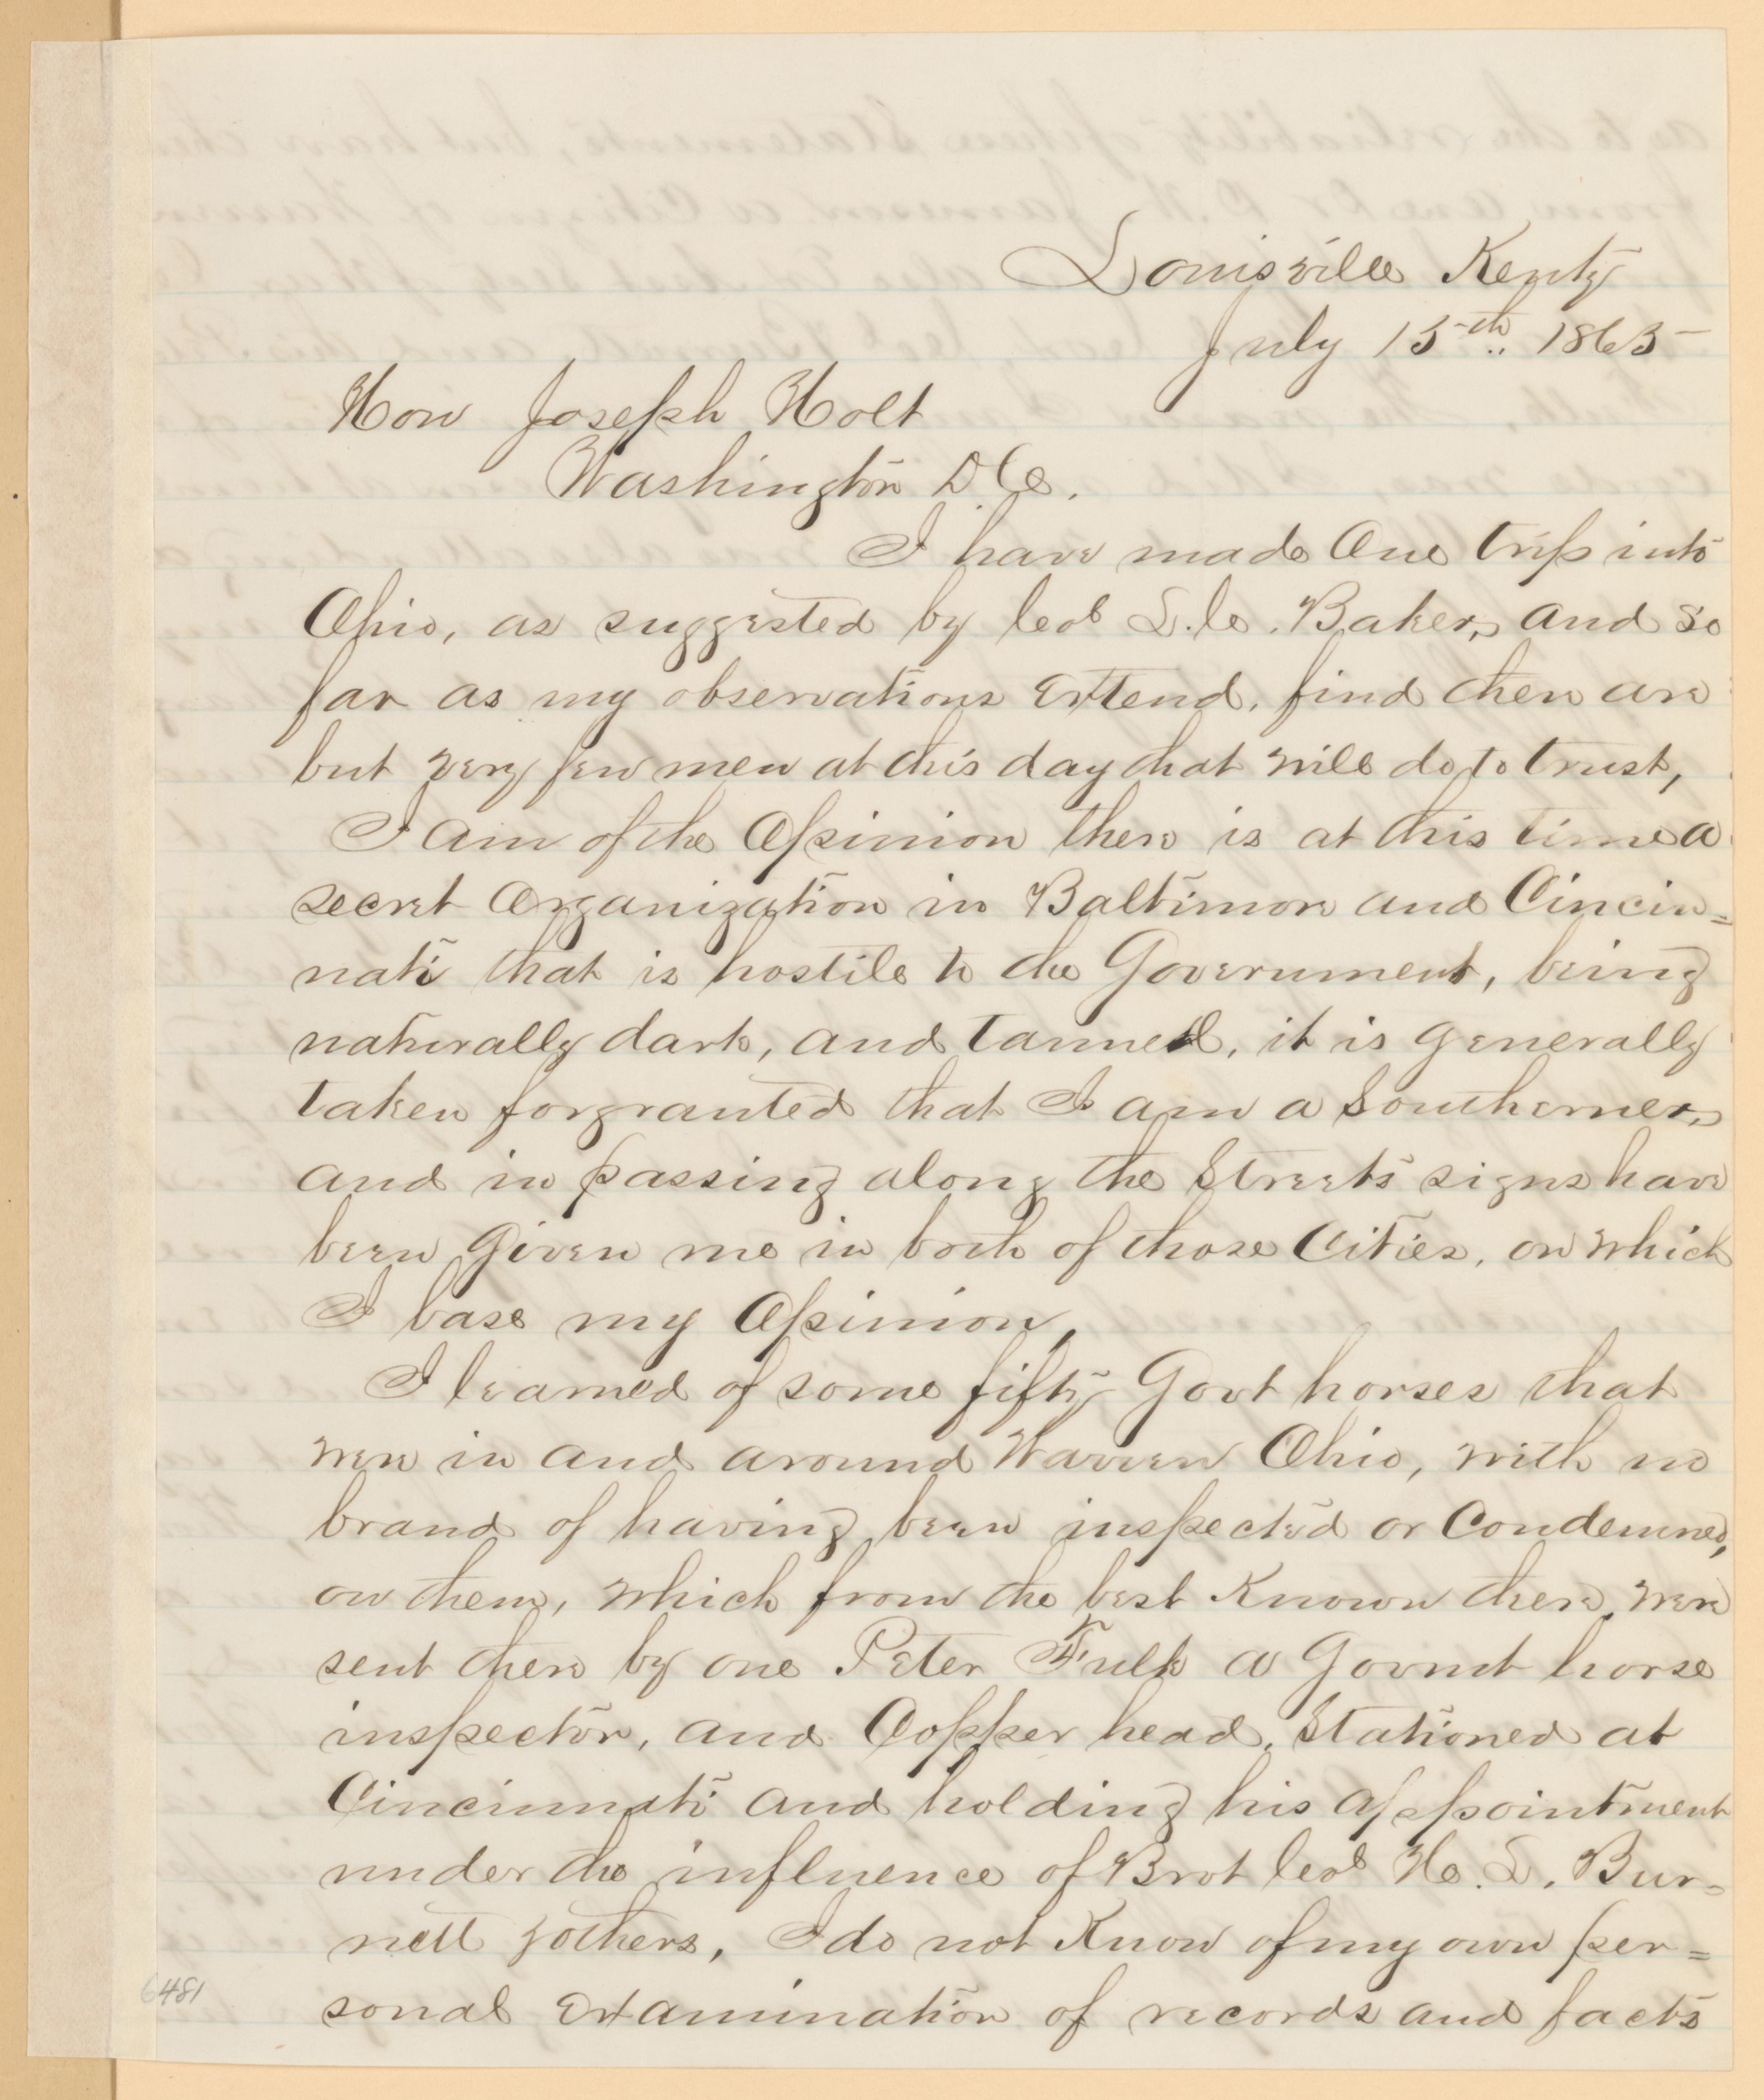 Louisville Kenty
July 15th 1865
Hon Joseph Holt
Washington D C.
I have made One trip into
Ohio, as suggested by Col L. C. Baker, and so
far as my observations Extend, find there are
but very few men at this day that will do to trust,
I am of the Opinion there is at this time a
secret Organization in Baltimore and Cincin=
nati that is hostile to the Government, being
naturally dark, and tanned, it is generally
taken for granted that I am a Southerner,
and in passing along the Streets signs have
been Given me in both of those Cities, on which
I base my Opinion,
I learned of some fifty Govt horses that
were in and around Warren Ohio, with no
brand of having been inspected or Condemned,
on them, which from the best Known there, were
sent there by one Peter Fulk a Govmt horse
inspector, and Copper head, Stationed at
Cincinnati and holding his appointment
under the influence of Brvt Col H. L. Bur=
nett & others, I do not Know of my own per=
sonal Examination of records and facts
6481